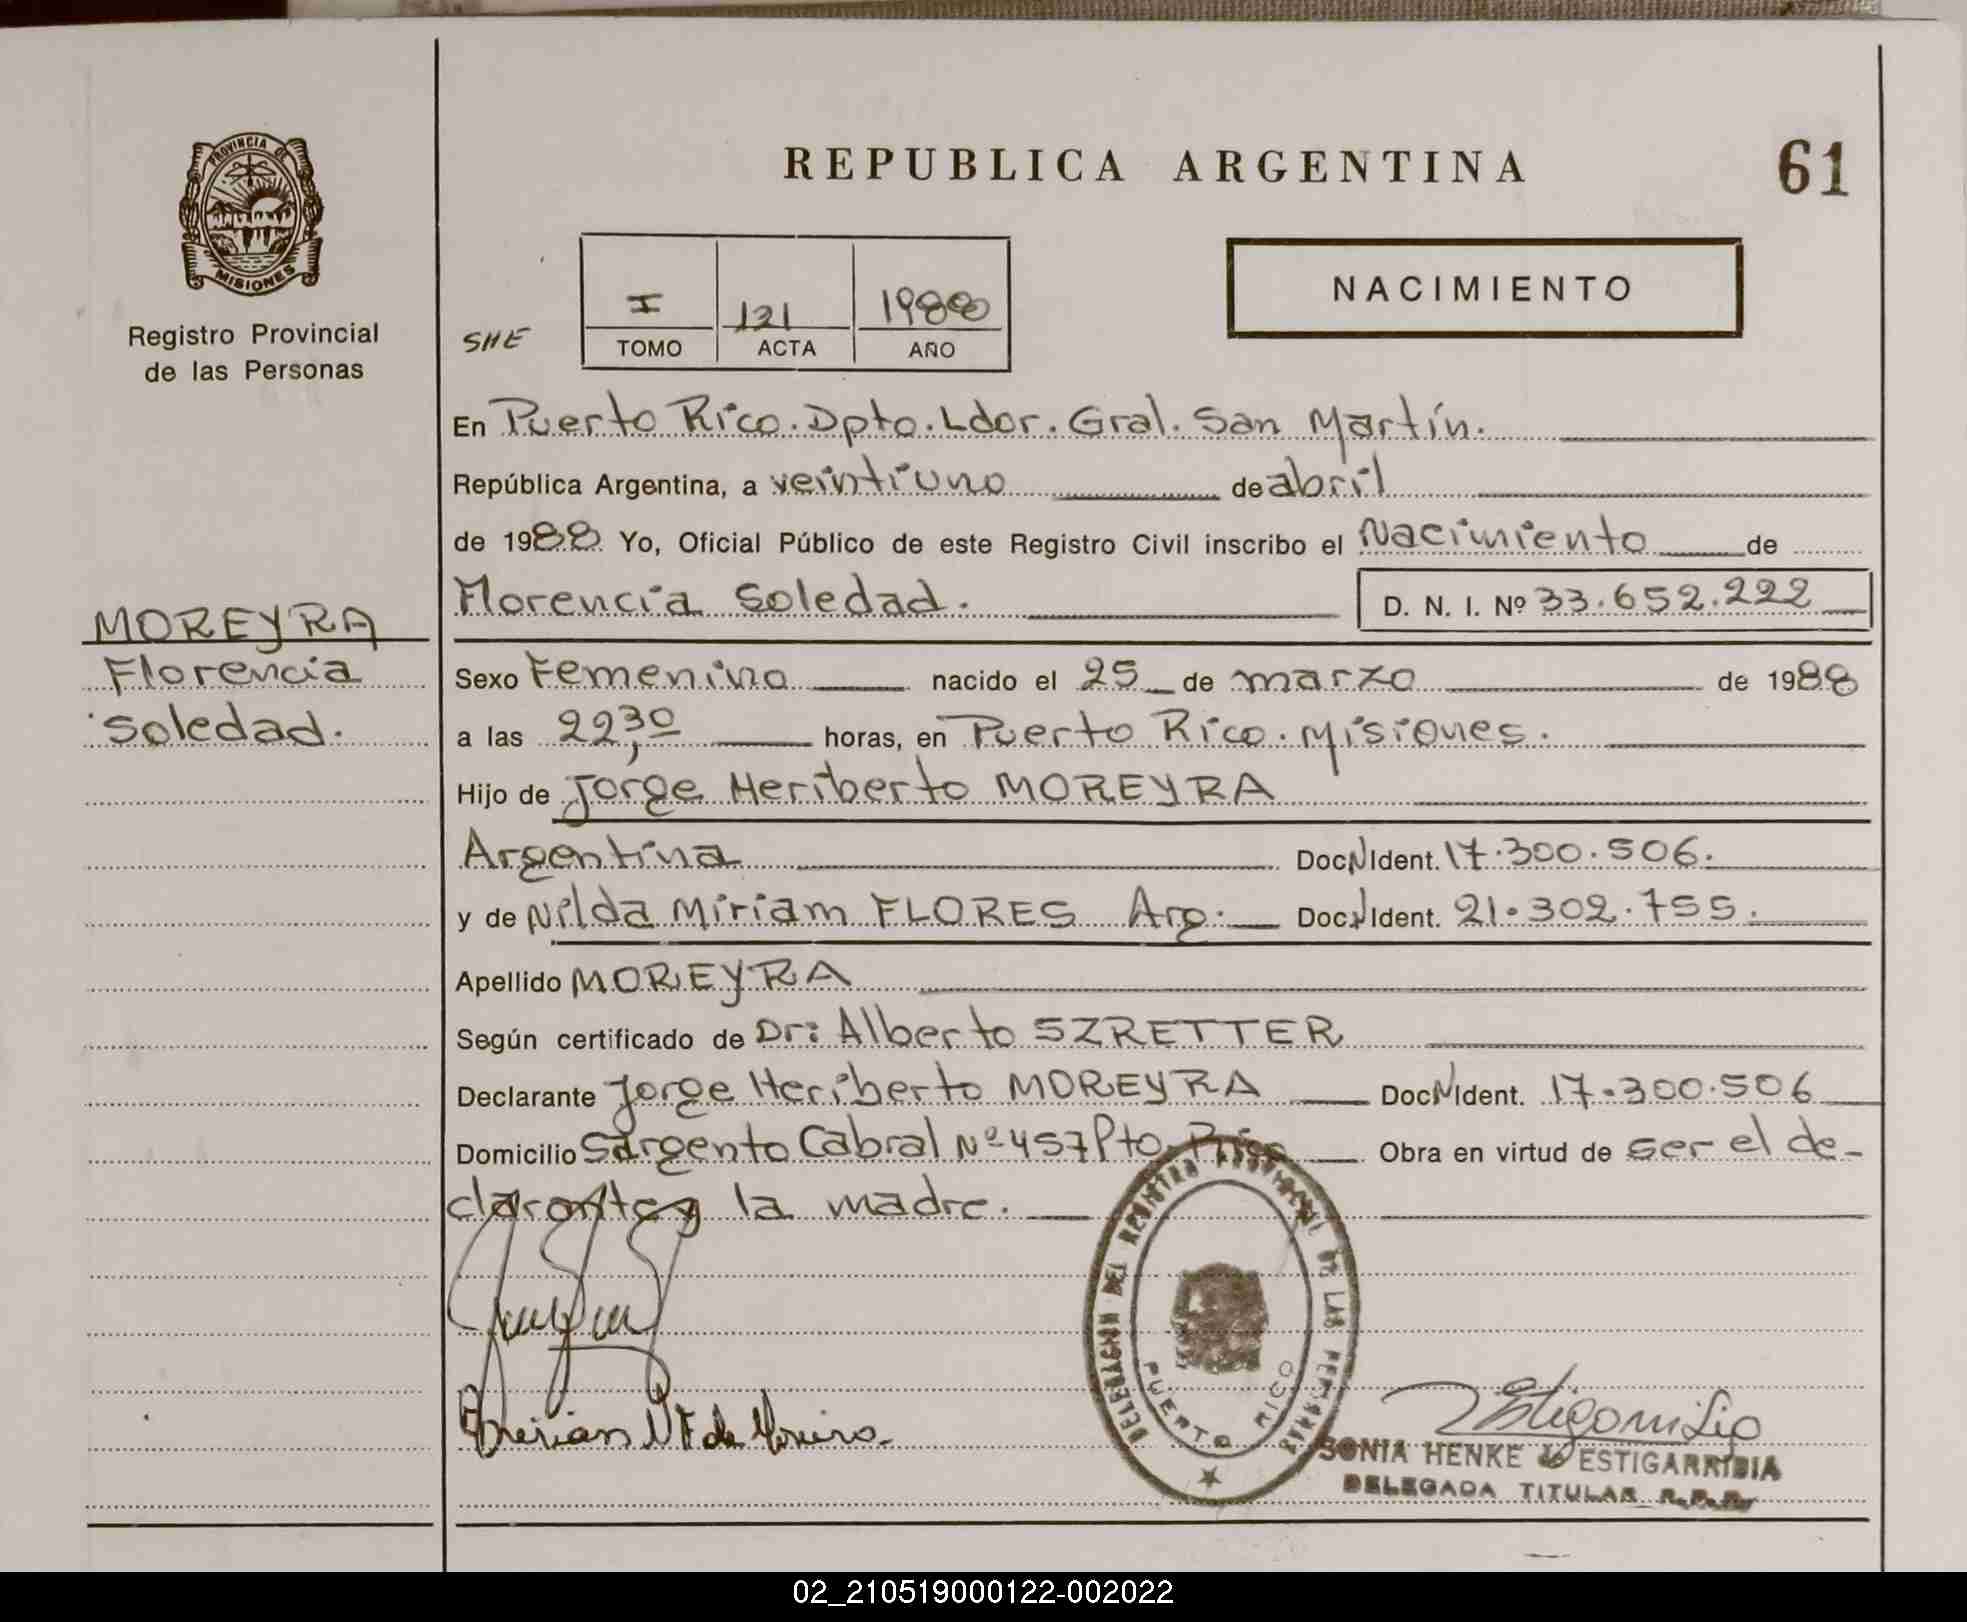 PROVINCIA DE
MISIONES
Registro Provincial
de las Personas
MOREYRA
Florencia
Soledad.
REPUBLICA ARGENTINA
61
SHE
I 121 1988
TOMO ACTA AÑO
NACIMIENTO
En Puerto Rico. Dpto. Ldor. Gral. San Martín.
República Argentina, a veintiuno de abril
de 1988 Yo, Oficial Público de este Registro Civil inscribo el Nacimiento de
Florencia Soledad. D. N. I. Nº 33.652.222
Sexo Femenino nacido el 25 de marzo de 1988
a las 22,30 horas, en Puerto Rico. Misiones.
Hijo de Jorge Heriberto MOREYRA
Argentina Doc N Ident. 17.300.506.
y de Nilda Miriam FLORES Arg. Doc N Ident. 21.302.755.
Apellido MOREYRA
Según certificado de Dr: Alberto SZRETTER
Declarante Jorge Heriberto MOREYRA Doc N Ident. 17.300.506
Domicilio Sargento Cabral Nº 457 Pto. Rico Obra en virtud de ser el de-
clarante y la madre.
DELEGACION DEL REGISTRO PROVINCIAL DE LAS PERSONAS
PUERTO RICO
SONIA HENKE de ESTIGARRIBIA
DELEGADA TITULAR R.P.P.
02_210519000122-002022